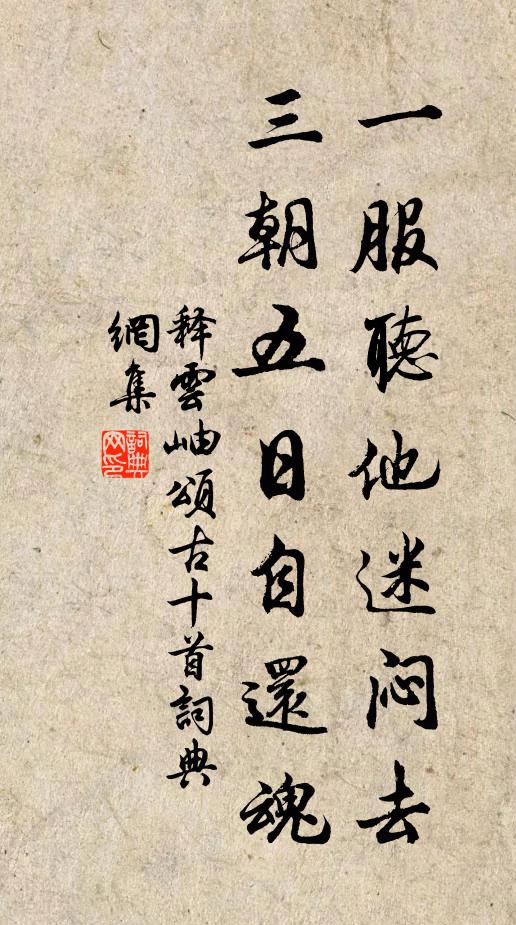 一服聽他迷闷去
三朝五日自還魂
释雲岫頌古十首詞典
網集
詞典
网印